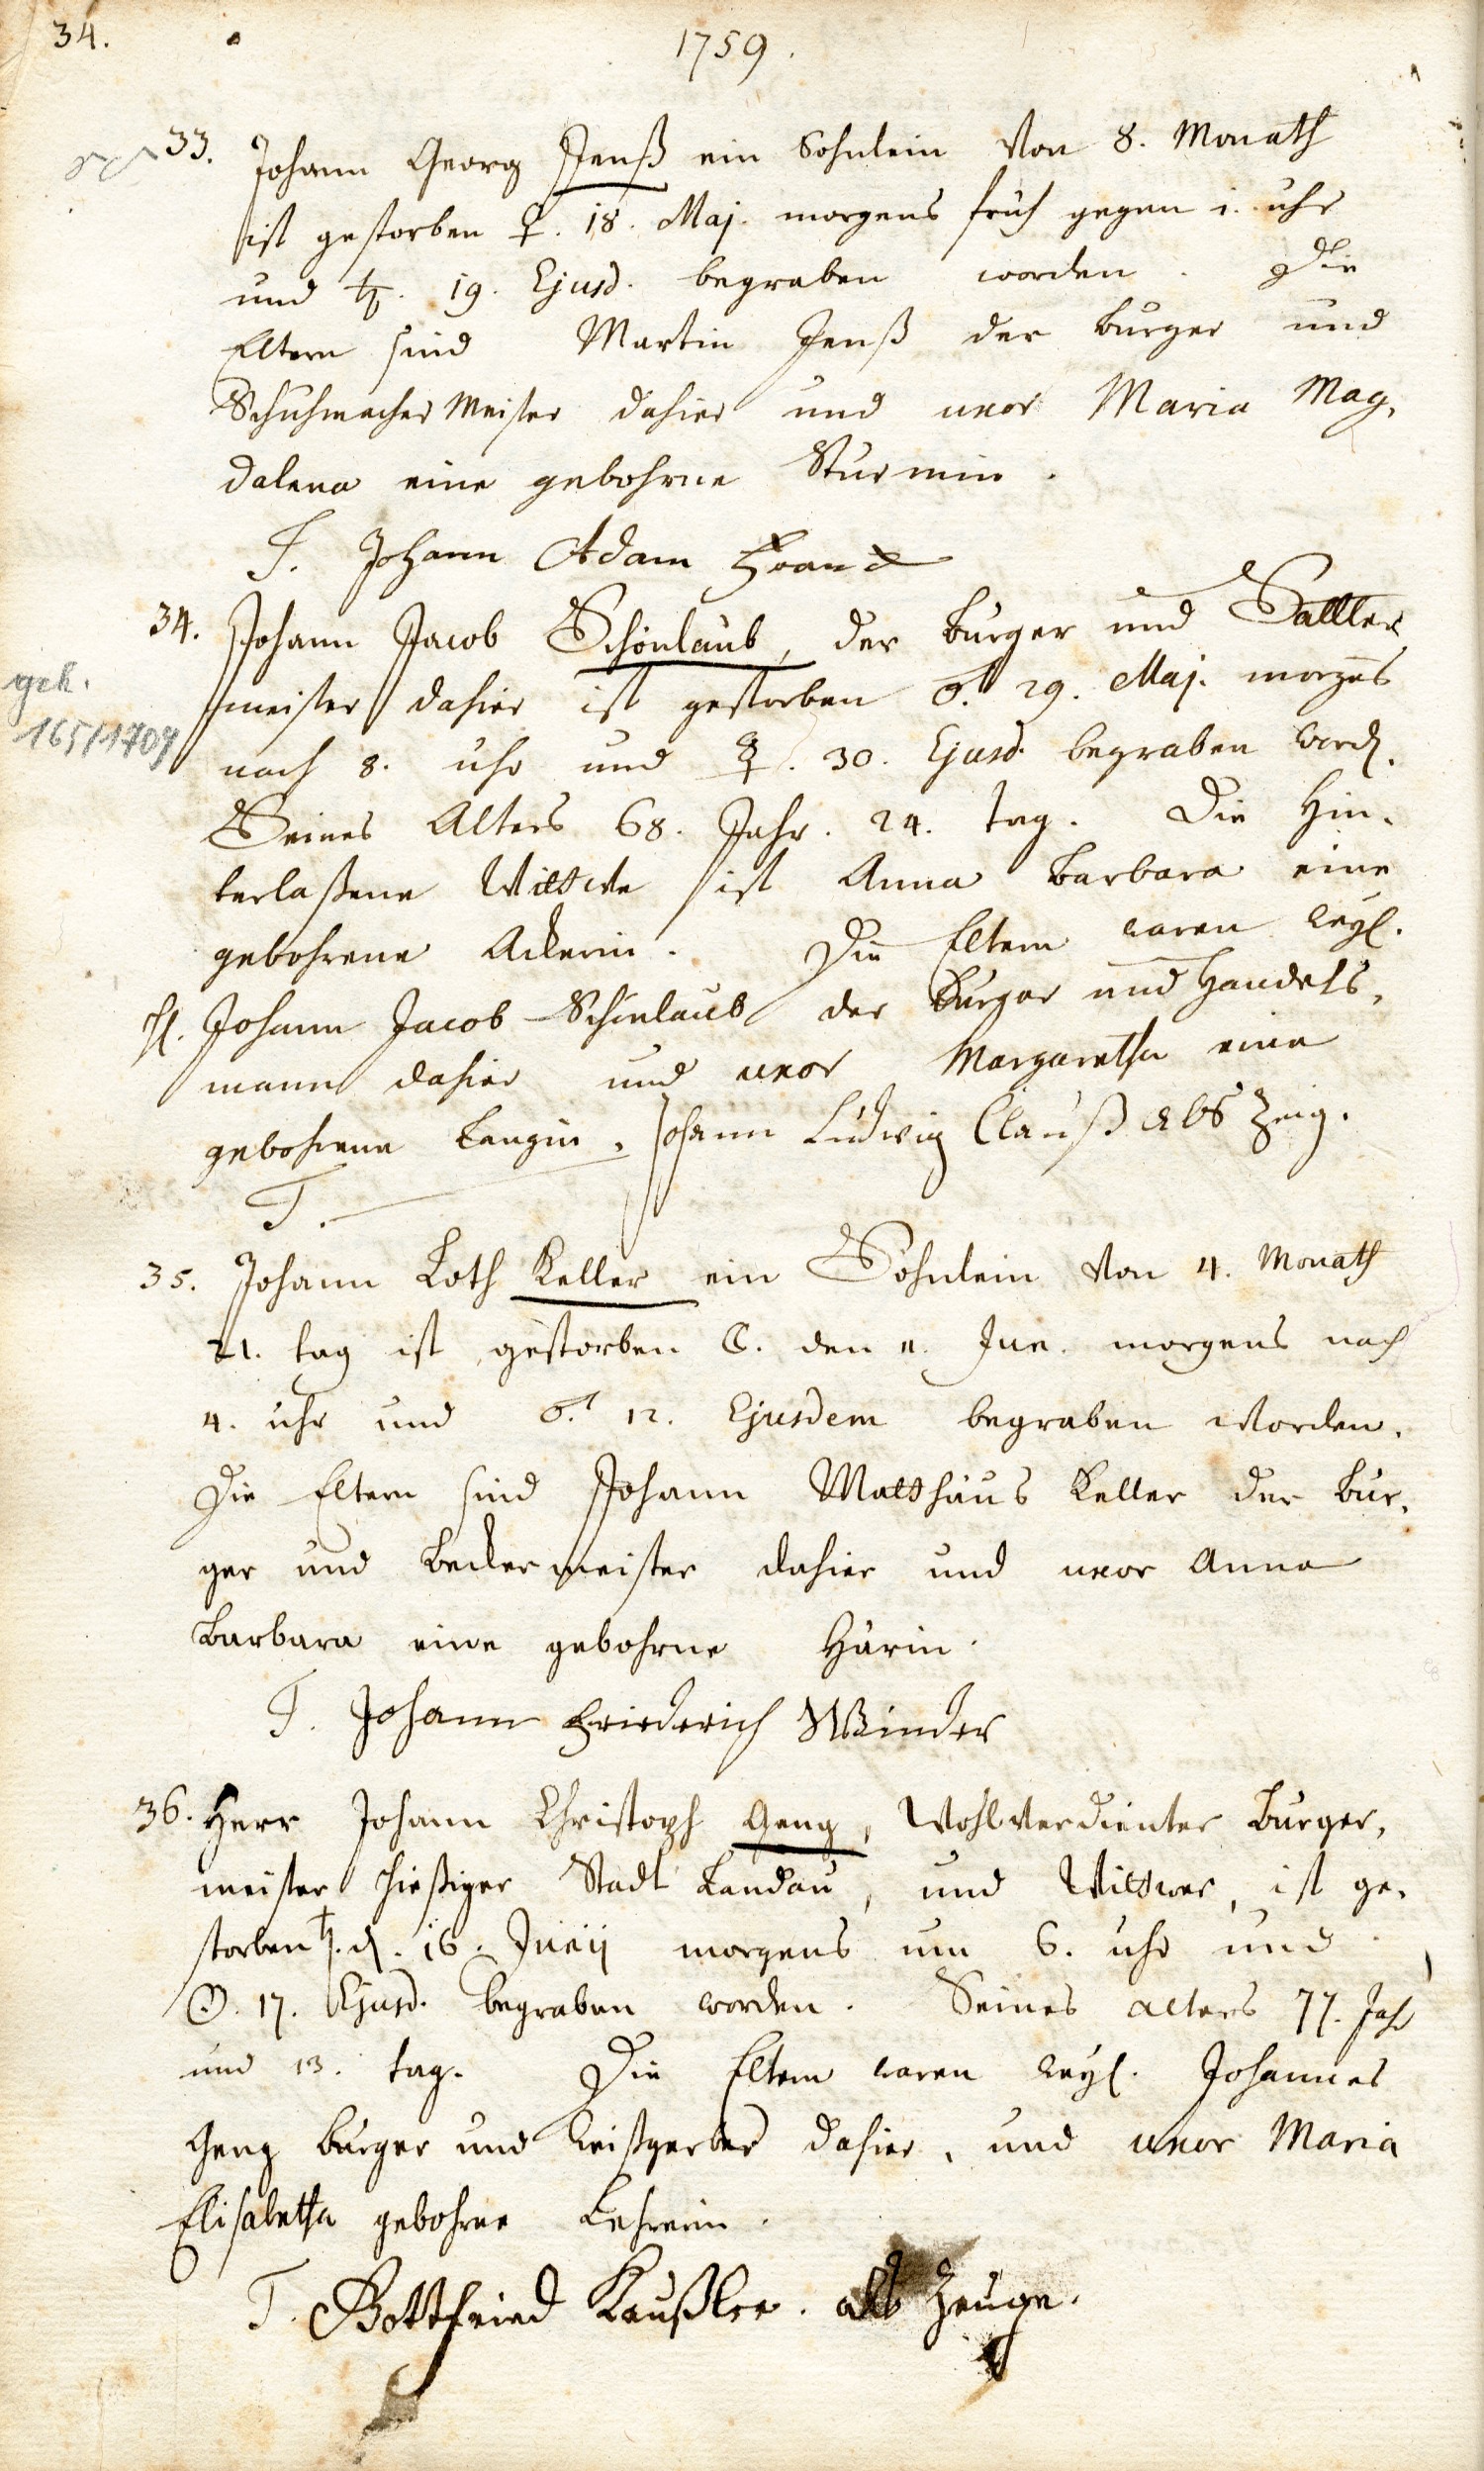 34.
1759.
33. Johann Georg Jenß ein Sohnlein von 8. Monath
ist gestorben ♀. 18. Maj. morgens früh gegen 1. uhr
und ♄. 19. Ejusd. begraben worden. Die
Eltern sind Martin Jenß der burger und
Schuhmacher Meister dahier und uxor Maria Mag,
dalena eine gebohrne Sturmin.
T. Johann Adam
34. Johann Jacob Schönlaub, der burger und Sattler
meister dahier ist gestorben ♂. 29. Maj. morgens
geh.
165/1709
nach 8. uhr und ☿. 30. Ejusd. begraben word.
Seines Alters 68. Jahr. 24. tag. Die Hin,
terlaßene Wittwe ist Anna Barbara eine
gebohrene Ackerin. Die Eltern waren weyl.
H. Johann Jacob Schönlaub der Burger und Handels,
mann dahier und uxor Margaretha eine
gebohrene Langin. Johann Ludwig Clauß als Zeig.
T.
35. Johann Loth Keller ein Söhnlein von 4. Monath
21. tag ist gestorben ☾. den 11. Jun. morgens nach
4. uhr und ♂. 12. Ejusdem begraben worden.
Die Eltern sind Johann Matthäus Keller der bur,
ger und beckermeister dahier und uxor Anna
Barbara eine gebohrne Härin.
T. Johann Friederich Winder
36. Herr Johann Christoph Geng, Wohlverdienter burger,
meister hießiger Stadt Landau, und Wittwer, ist ge,
storben ♄. d. 16. Junij morgens um 6. uhr und
☉. 17. Ejusd. begraben worden. Seines alters 77. Jahr
und 13. tag. Die Eltern waren weyl. Johannes
Geng burger und weißgerber dahier, und uxor Maria
Elisabetha gebohrne Lehrerin.
T. Gottfried Kaußler. als Zeuge.